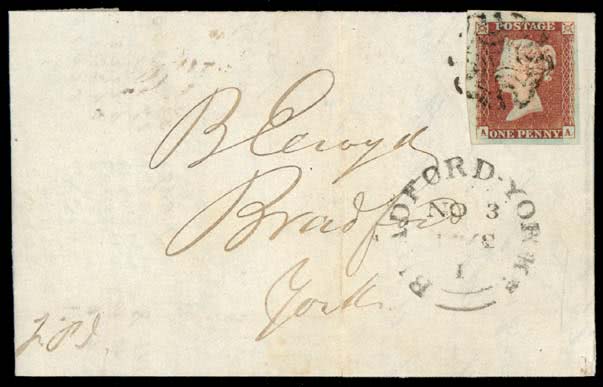 POSTAGE
A ONE PENNY A
Bradford
York
BRADFORD-YORKS
NO 3
1